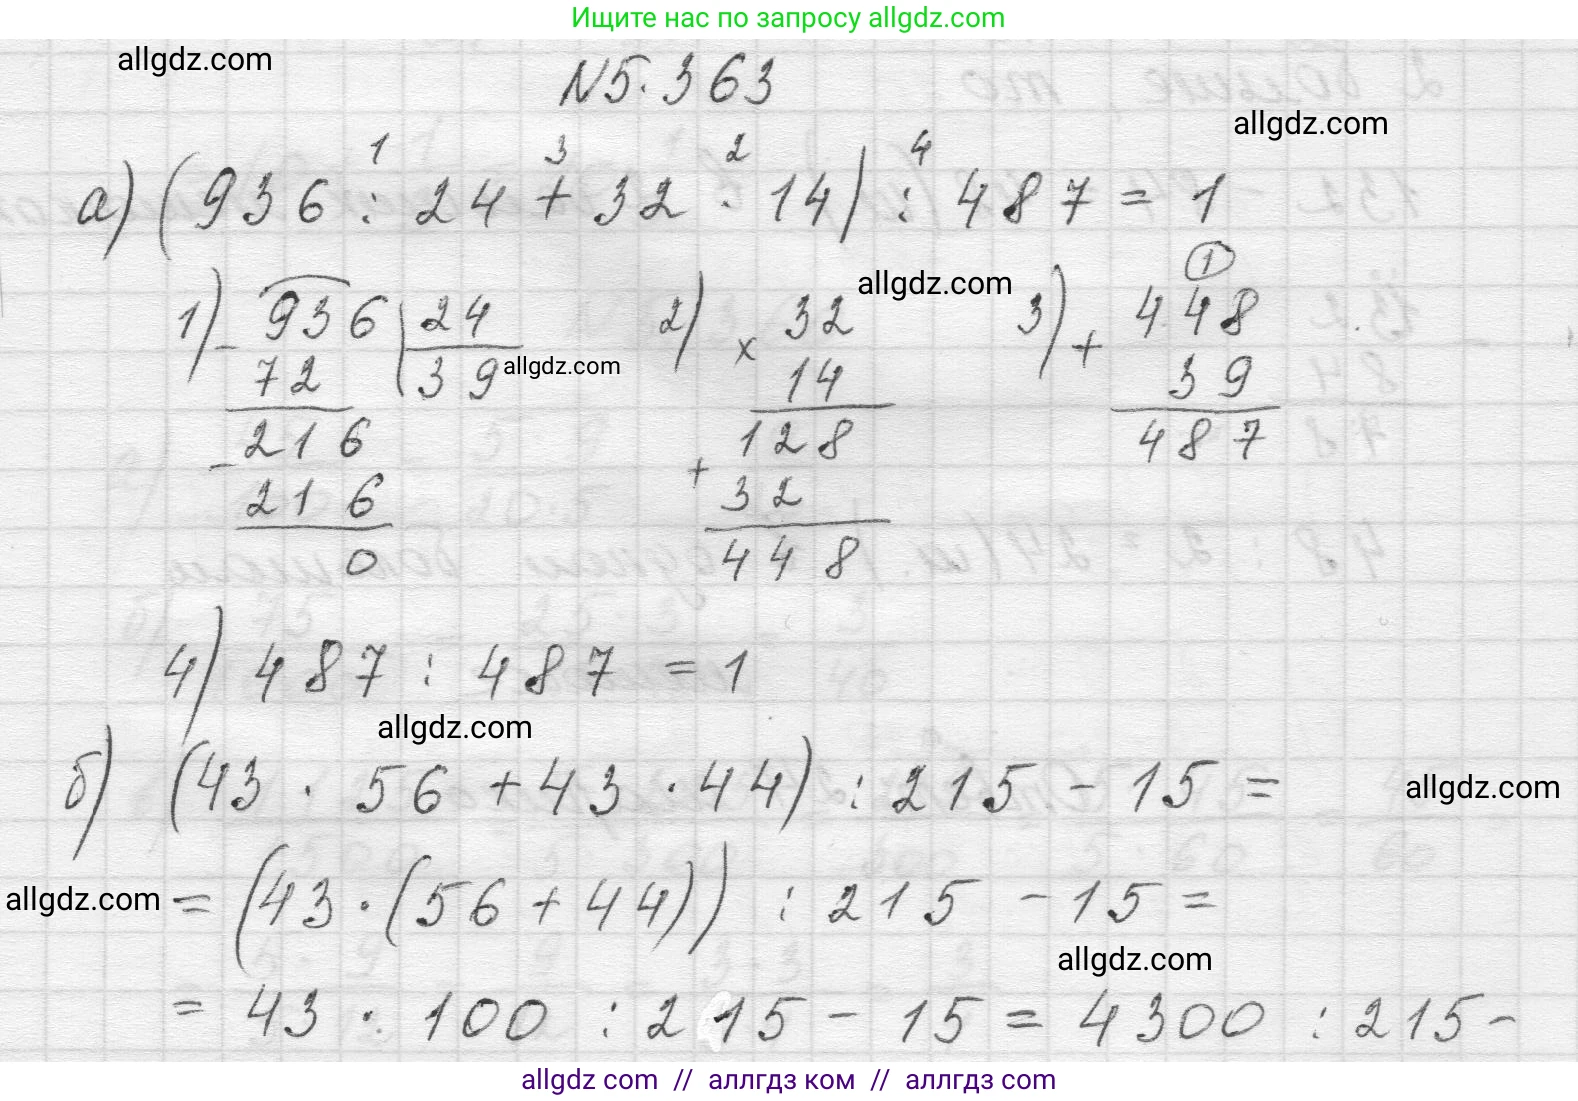 Ищите нас по запросу allgdz.com
allgdz.com
N5.363
allgdz.com
1 3 2 4
а) (936 : 24 + 32 · 14) : 487 = 1
1) - 936 | 24 2) × 32 allgdz.com 3) + 448 (1)
72 39 allgdz.com 14 39
- 216 128 487
216 + 32
0 448
4) 487 : 487 = 1
allgdz.com
б) (43 · 56 + 43 · 44) : 215 - 15 =
allgdz.com
allgdz.com
= (43 · (56 + 44)) : 215 - 15 =
allgdz.com
= 43 · 100 : 215 - 15 = 4300 : 215 -
allgdz com // аллгдз ком // аллгdz com